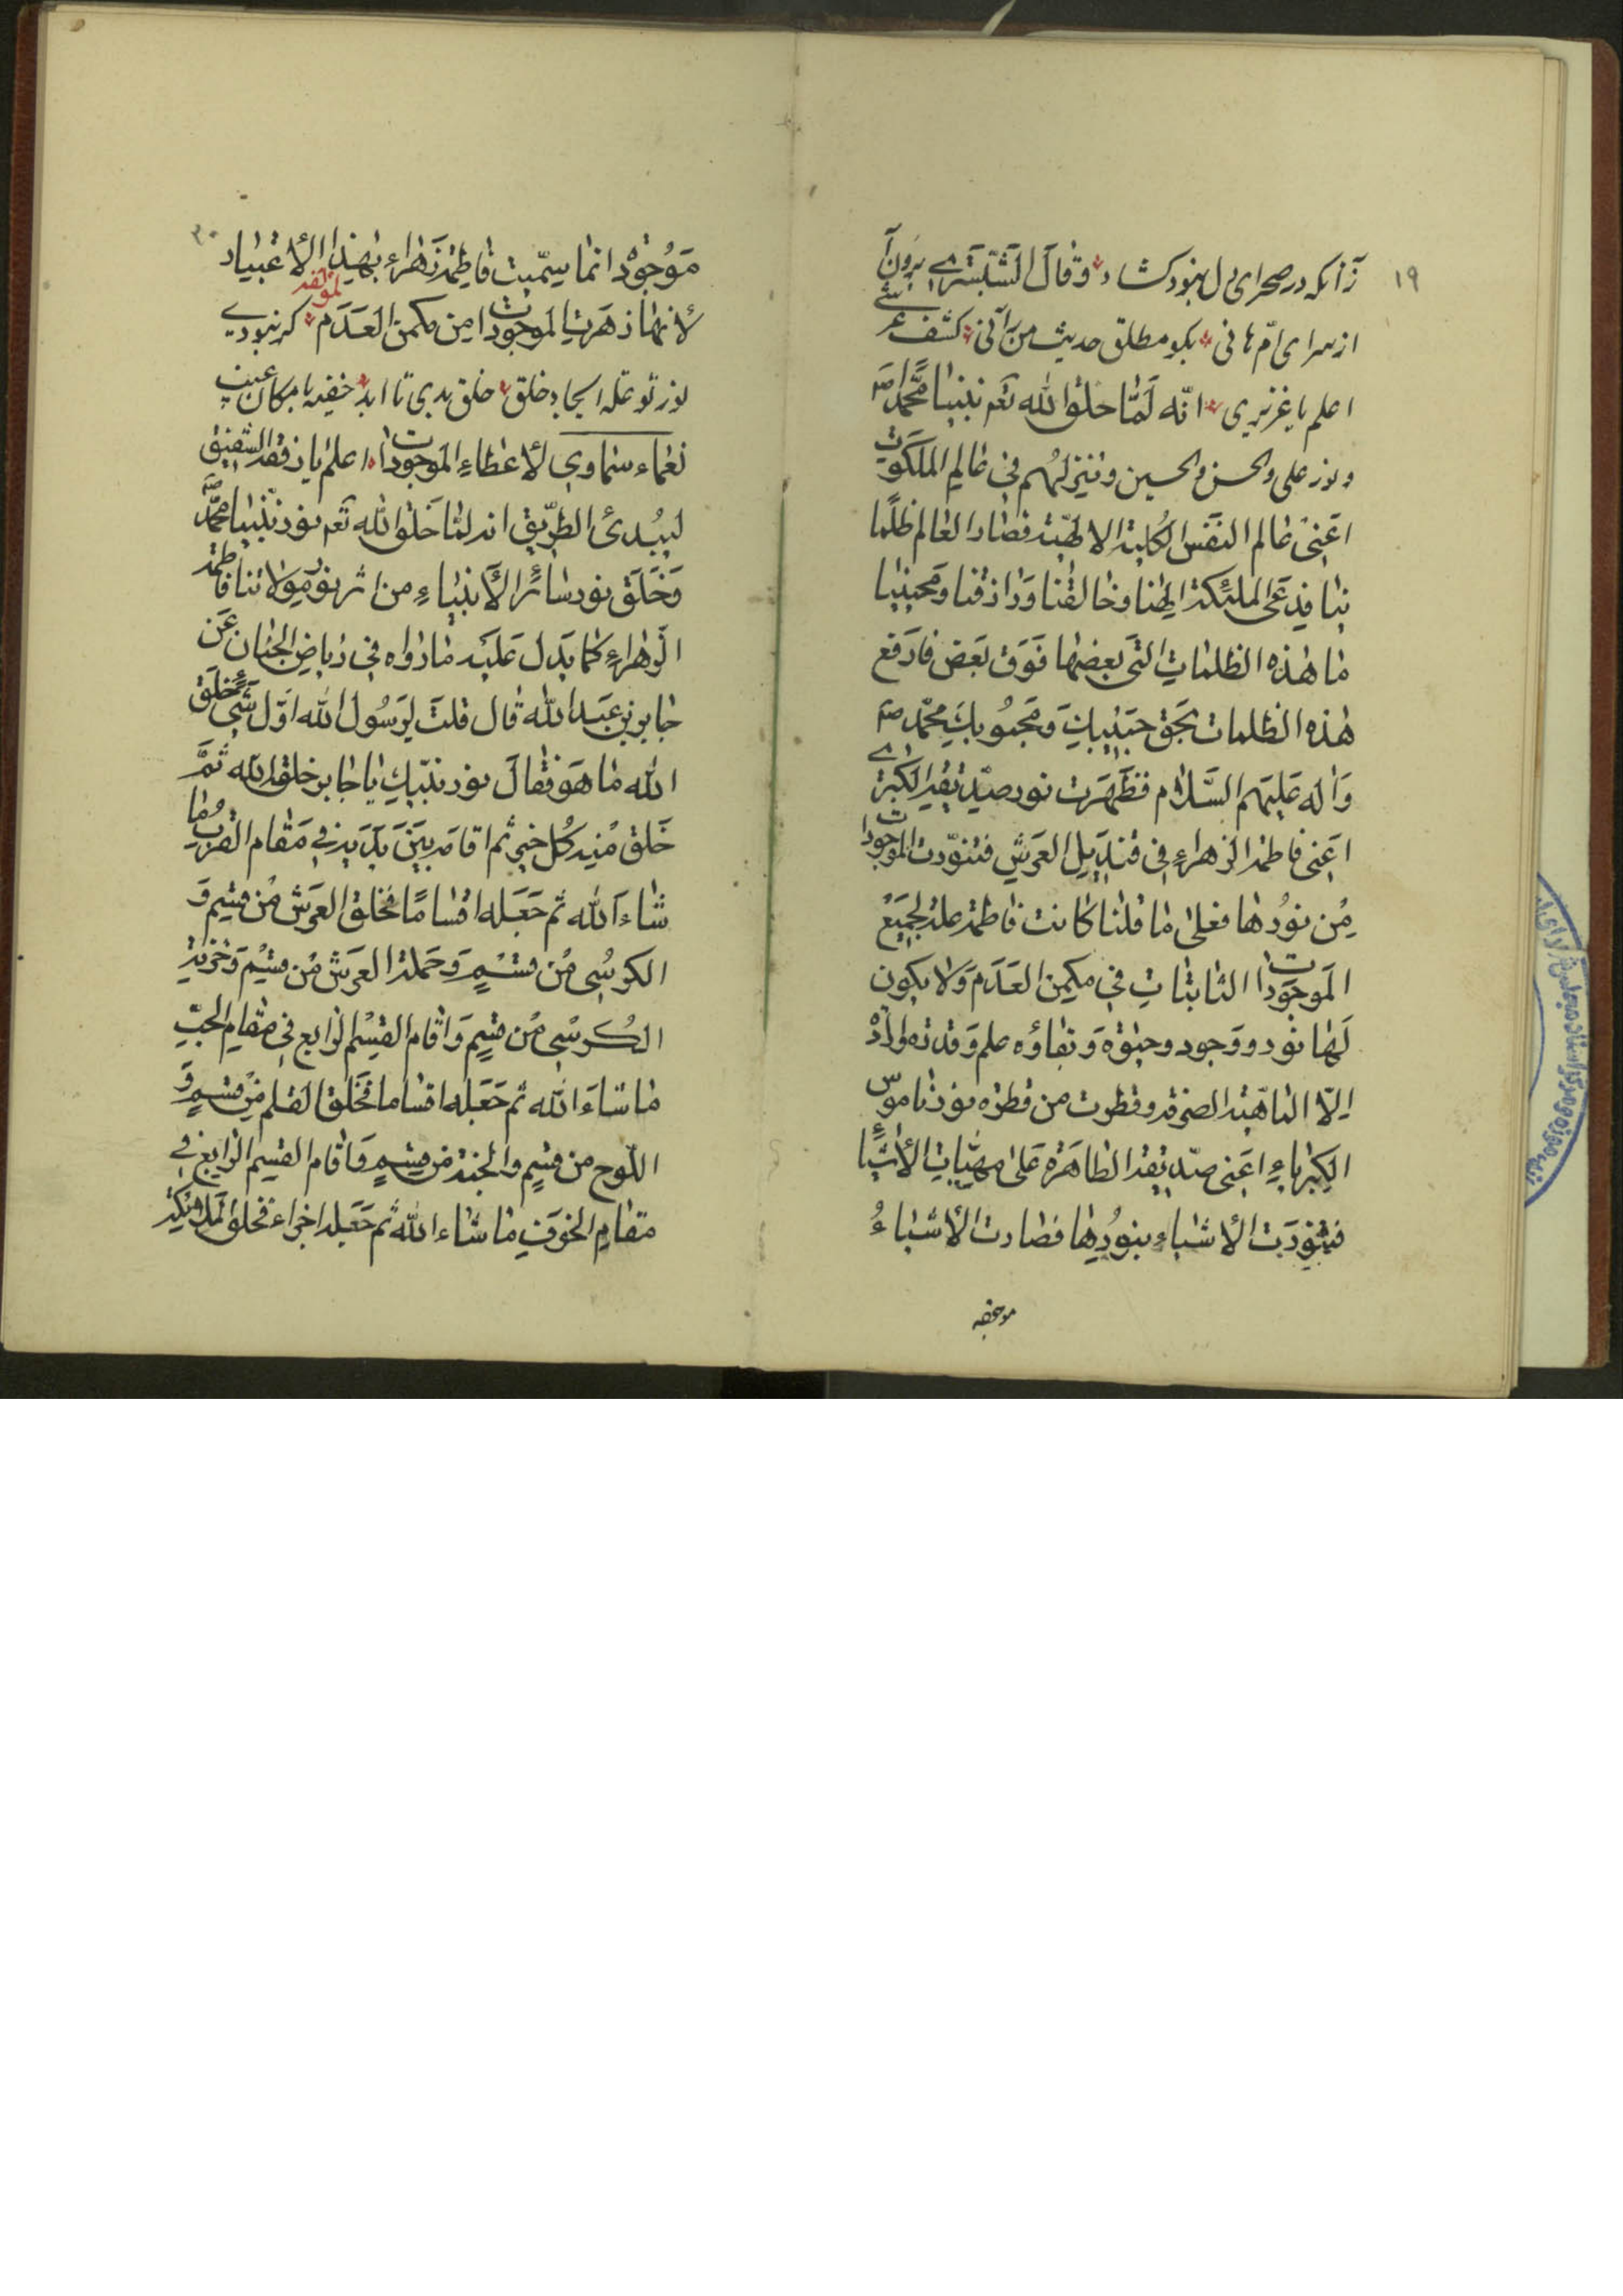 ۱۹
زآنکه در صحرای دل بنود کشاد وَقالَ الشبستری برون آ
از سرای امّ هانی بکو مطلق حدیث من رآنی کشف عرشی
اعلم یا عزیزی انّه لَمّا خلق الله تعم نبینا محمّدا صم
و نور علی والحسن والحسین وانیزلهُم فی عٰالم الملکوت
اعنی عٰالم النفس الکلیة الالهیّة فصار العٰالم ظلمًا
الملئکة الهنا وخالقنا ورازقنا ومحبنا
ما هٰذه الظلمات التی بعضها فوق بعض فارفع
هٰذه الظلمات بحق حبیبک ومحبوبک محمّد صم
واٰله علیهم السَّلام فظهرت نور صدیقة الکبری
اعنی فاطمة الزهراء فی قندیل العرش فتنوّرت الموجودات
من نورها فعلی ما قلنا کانت فاطمة علة لجمیع
الموجودات الثابتات فی مکمن العدم ولا یکون
لها نور ووجود وحیٰوة وبقاؤه علم وقدته وارادة
الّا الماهیّة الصرفة وقطرت من قطرة نور ناموس
الکبریاء اعنی صدیقة الطاهرة علی مهیّات الأشیاء
فتنورت الأشیاء بنورها فصارت الأشیاءُ
موجوده
۲۰
مَوجودة انما سمّیت فاطمة زهراء بهذا الأعتبار
لأنها زهرت الموجودات من مکمن العدم لمؤلفه کر نبودی
نور تو علة ایجاد خلق خلق بدی تا ابد خفیه بامکان غیب
نعماء سماوی لأعطاء الموجودات اعلم یا رفقة الشفیق
لیبدئ الطریق انه لمّا خلق الله تعم نور نبینا محمّد صم
وخلق نور سائر الأنبیاء من اثر نور مولاتنا فاطمة
الزهراء کما یدل علیه ما رواه فی ریاض الجنان عن
جابر بن عبد الله قال قلت لرسول الله اوّل شیء خلق
الله ما هو فقال نور نبیّک یا جابر خلقه الله ثمّ
خلق منه کل خیر ثم اقامه بین یدیه فی مقام القرب ما
شاء الله ثم جعله اقسامًا فخلق العرش من قسم و
الکرسی من قسم وحملة العرش من قسم وخزنة
الکرسی من قسم واقام القسم الرابع فی مقام الحبّ
ما شاء الله ثم جعله اقساما فخلق القلم من قسم و
اللّوح من قسم والجنة من قسم واقام القسم الرابع فی
مقام الخوف ما شاء الله ثم جعله اجزاء فخلق الملائکة